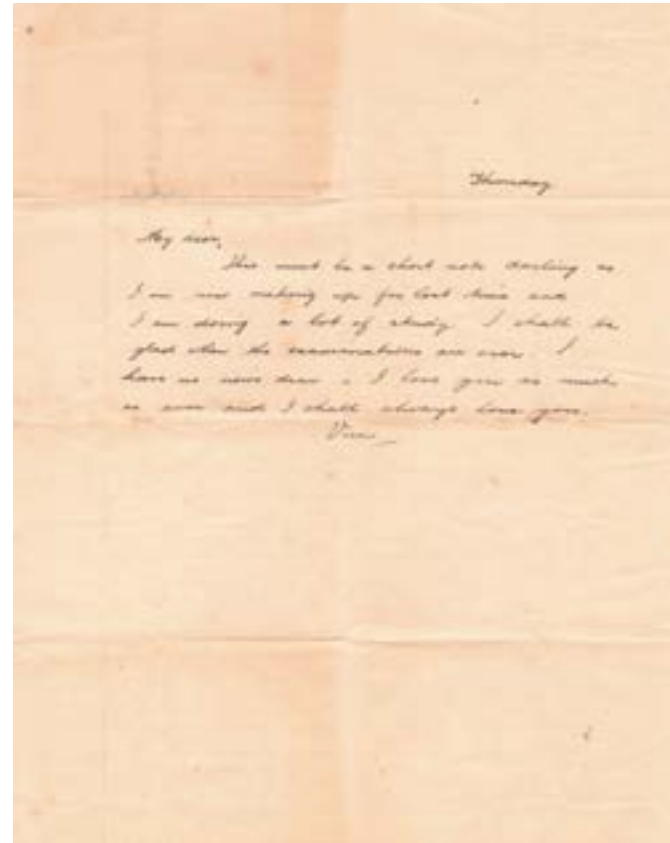 Thursday
My dear,
This must be a short note darling as
I am now making up for lost time and
I am doing a lot of study. I shall be
glad when the examinations are over. I
have no news dear. I love you as much
as ever and I shall always love you.